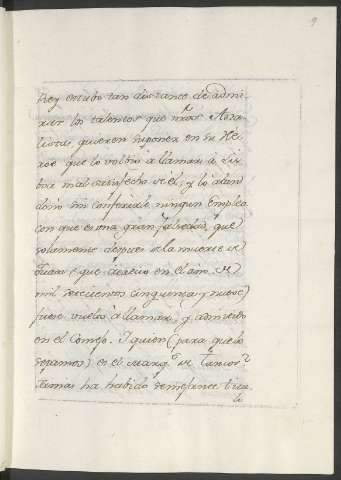 9
Rey estubo tan distante de admi-
rar los talentos que nros
quieren suponer en su He-
roe que lo volvio a llamar à
mal satisfecho de èl, y lo aban-
donó sin conferirle ningun Empleo
con que es una gran falsedad, que
solamente despues de la muerte de
que acaecio en el año de
mil setecientos cinquenta y nueve
fuese vuelto à llamar, y admitido
en el Consejo. I quien (para que lo
sepamos) es el Marqs. de
Jamas ha habido semejante titu-
lo